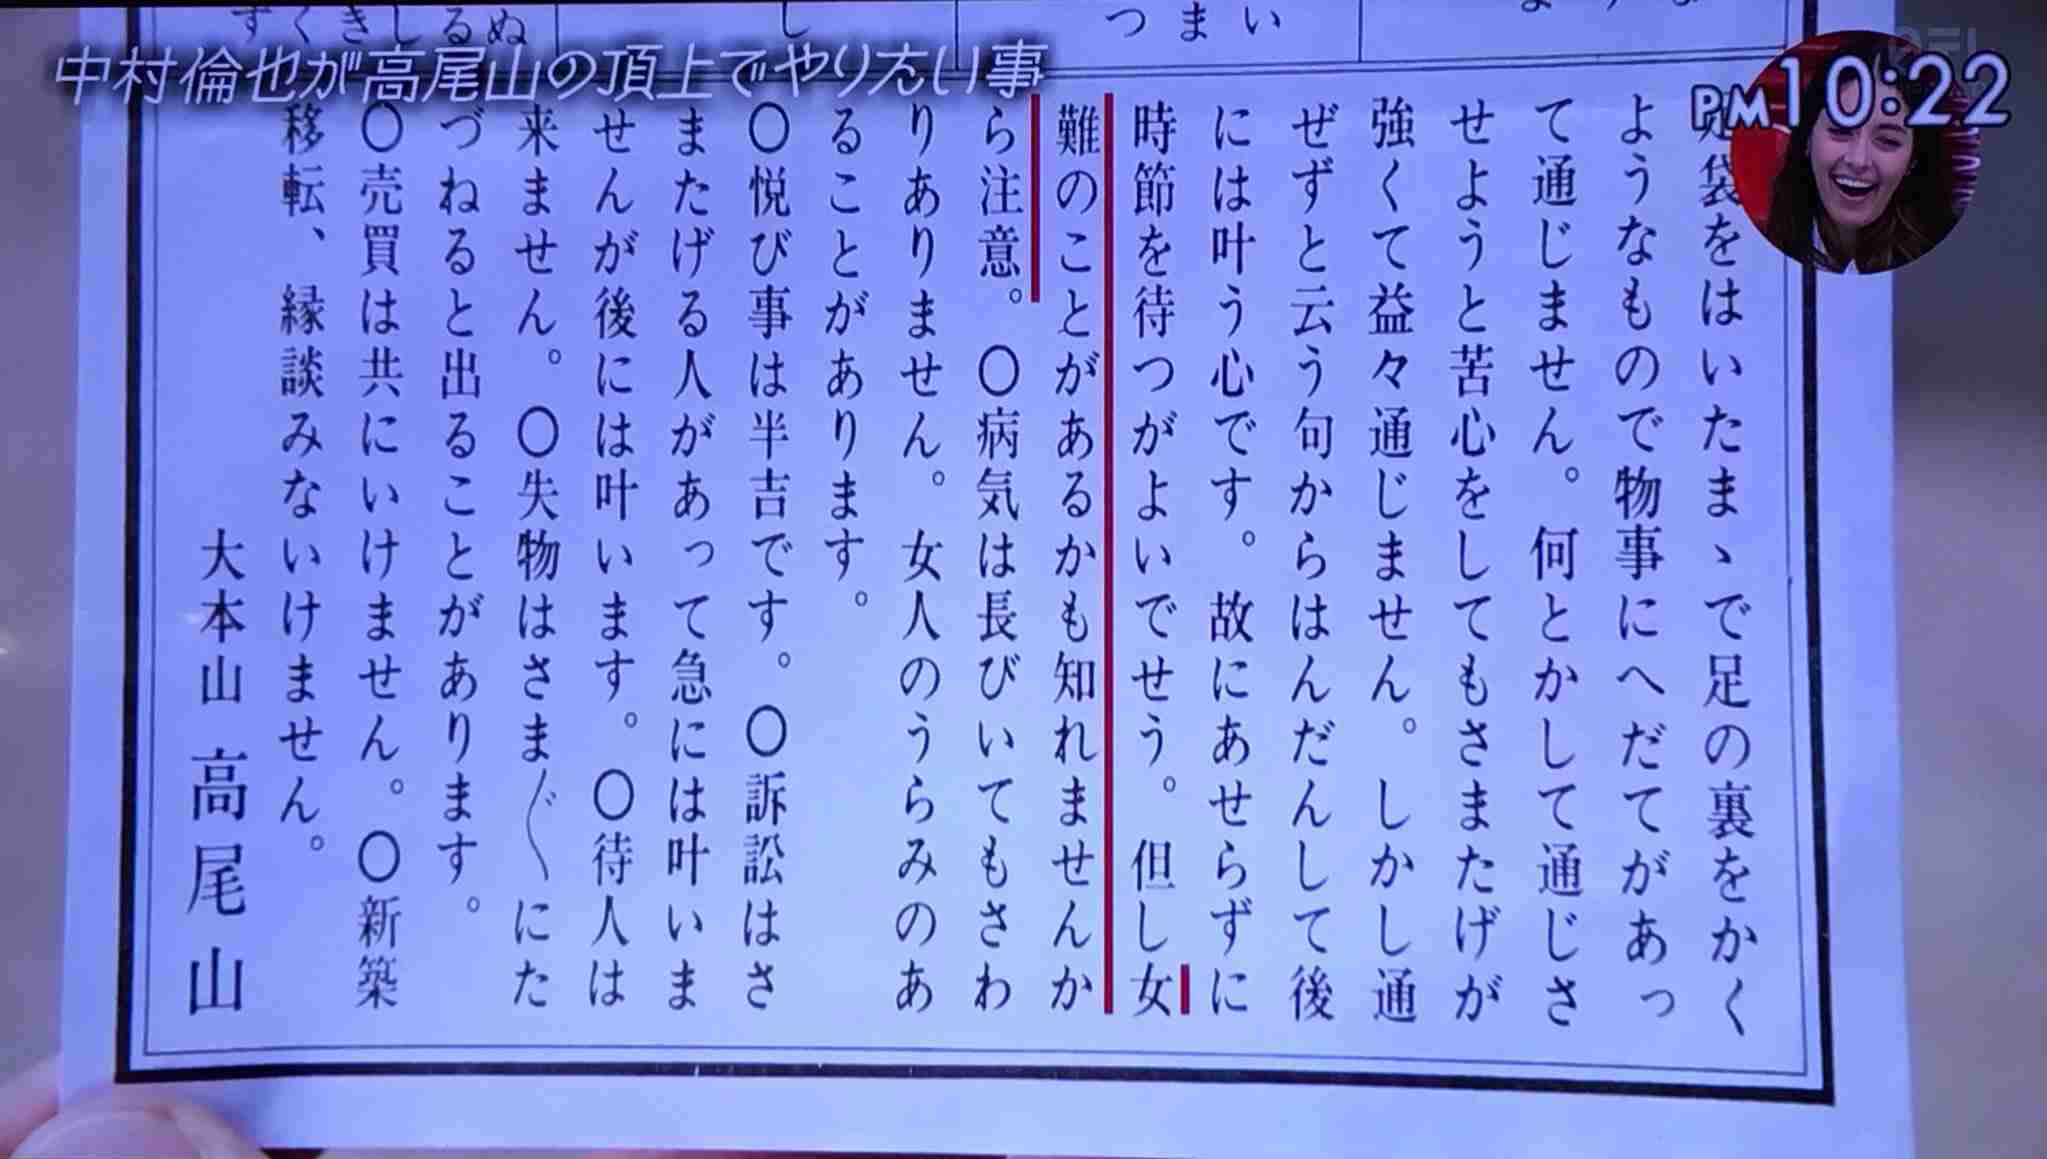 すくきしるぬ
し
つまい
中村倫也が高尾山の頂上でやりたい事
PM10:22
袋をはいたまゝで足の裏をかく
ようなもので物事にへだてがあっ
て通じません。何とかして通じさ
せようと苦心をしてもさまたげが
強くて益々通じません。しかし通
ぜずと云う句からはんだんして後
には叶う心です。故にあせらずに
時節を待つがよいでせう。但し女
難のことがあるかも知れませんか
ら注意。〇病気は長びいてもさわ
りありません。女人のうらみのあ
ることがあります。
〇悦び事は半吉です。〇訴訟はさ
またげる人があって急には叶いま
せんが後には叶います。〇待人は
来ません。〇失物はさま〴〵にた
づねると出ることがあります。
〇売買は共にいけません。〇新築
移転、縁談みないけません。
大本山 高尾山